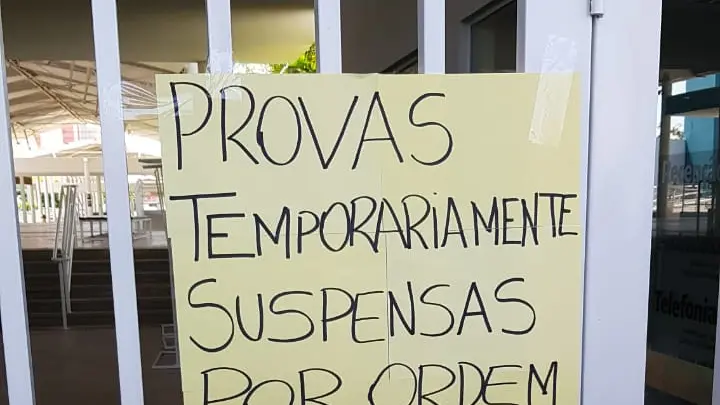 PROVAS
TEMPORARIAMENTE
SUSPENSAS
POR ORDEM
Recepção
Telefonia